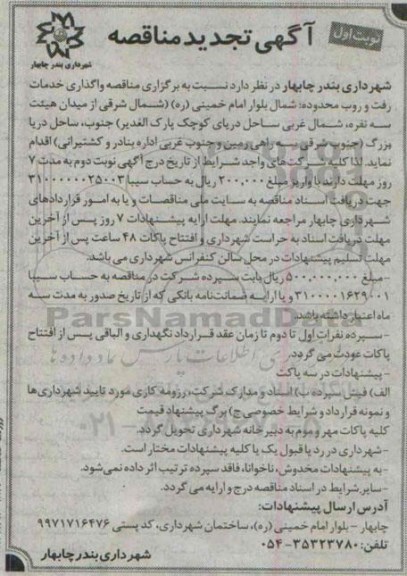 نوبت اول
آگهی تجدید مناقصه
شهرداری بندر چابهار
شهرداری بندر چابهار در نظر دارد نسبت به برگزاری مناقصه واگذاری خدمات
رفت و روب محدوده: شمال بلوار امام خمینی (ره) (شمال شرقی از میدان هیئت
سه نفره، شمال غربی ساحل دریای کوچک پارک الغدیر) جنوب، ساحل دریا
بزرگ (جنوب شرقی سه راهی رمین و جنوب غربی اداره بنادر و کشتیرانی) اقدام
نماید. لذا کلیه شرکت های واجد شرایط از تاریخ درج آگهی نوبت دوم به مدت ۷
روز مهلت دارند با واریز مبلغ ۲۰۰,۰۰۰ ریال به حساب سیبا ۳۱۰۰۰۰۰۰۲۵۰۰۳
جهت دریافت اسناد مناقصه به سایت ملی مناقصات و یا به امور قراردادهای
شهرداری چابهار مراجعه نمایند. مهلت ارایه پیشنهادات ۷ روز پس از آخرین
مهلت دریافت اسناد به حراست شهرداری و افتتاح پاکات ۴۸ ساعت پس از آخرین
مهلت تسلیم پیشنهادات در محل سالن کنفرانس شهرداری می باشد.
-مبلغ ۵۰۰,۰۰۰,۰۰۰ ریال بابت سپرده شرکت در مناقصه به حساب سیبا
۳۱۰۰۰۰۱۶۲۹۰۰۱ و یا ارایه ضمانت نامه بانکی که از تاریخ صدور به مدت سه
ماه اعتبار داشته باشد.
-سپرده نفرات اول تا دوم تا زمان عقد قرارداد نگهداری و الباقی پس از افتتاح
پاکات عودت می گردد.
-پیشنهادات در سه پاکت
الف) فیش سپرده ب) اسناد و مدارک شرکت، رزومه کاری مورد تایید شهرداری ها
و نمونه قرارداد و شرایط خصوصی ج) برگ پیشنهاد قیمت
کلیه پاکات مهر و موم به دبیرخانه شهرداری تحویل گردد.
-شهرداری در رد یا قبول یک یا کلیه پیشنهادات مختار است.
-به پیشنهادات مخدوش، ناخوانا، فاقد سپرده ترتیب اثر داده نمی شود.
-سایر شرایط در اسناد مناقصه درج و ارایه می گردد.
آدرس ارسال پیشنهادات:
چابهار - بلوار امام خمینی (ره)، ساختمان شهرداری، کد پستی ۹۹۷۱۷۱۶۴۷۶
تلفن: ۳۵۳۲۳۷۸۰-۰۵۴
شهرداری بندر چابهار
ParsNamadData